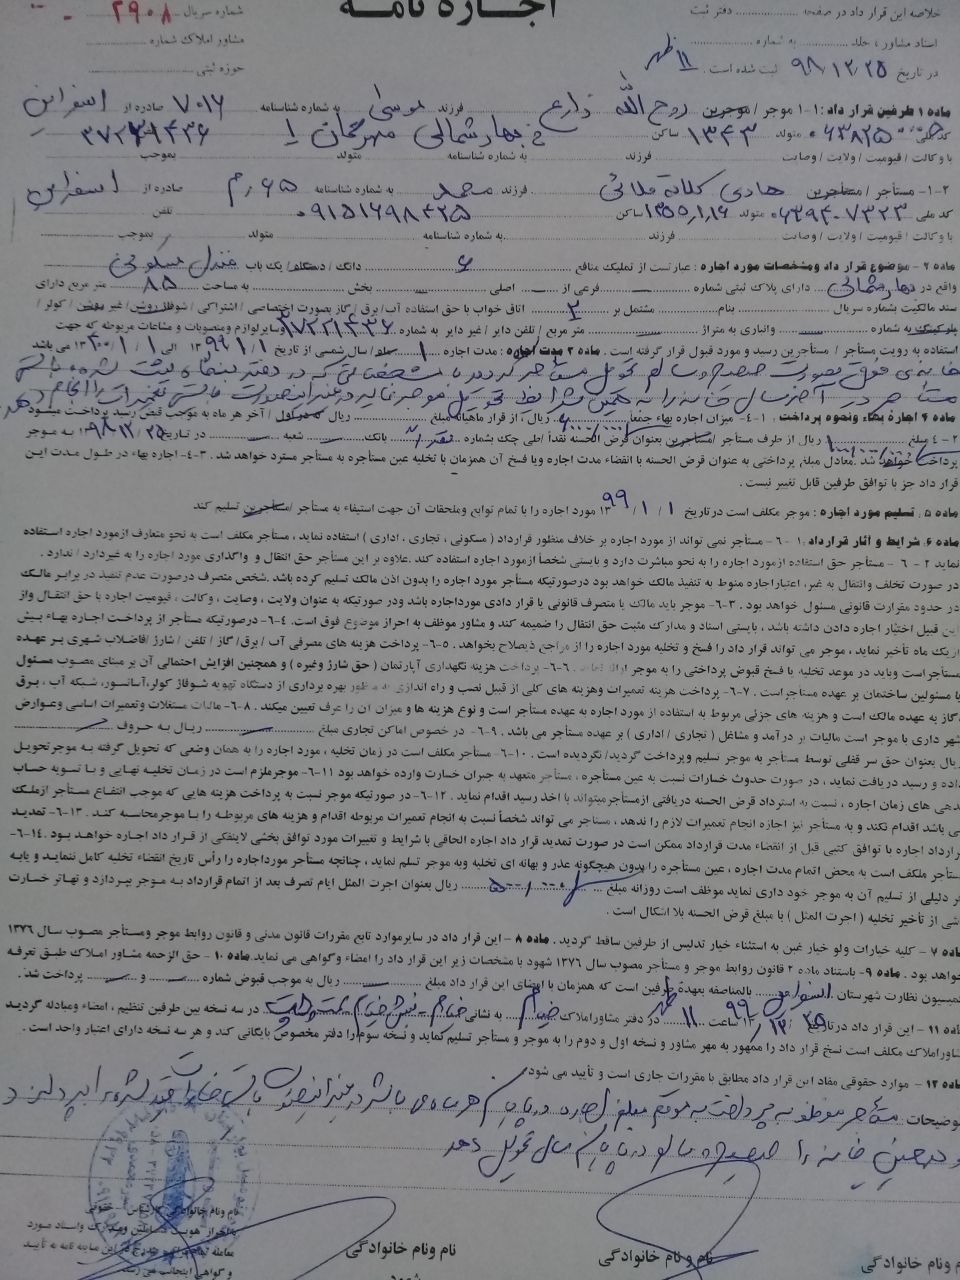 اجاره نامه
خلاصه این قرار داد در صفحه ............ دفتر ثبت
شماره سریال ۲۹۰۸
اسناد مشاور ، جلد ............ به شماره ............
مشاور املاک شماره ............
در تاریخ ۹۸/۱۲/۲۵ ثبت شده است . ۱۱ ظهر
حوزه ثبتی ............
ماده ۱ طرفین قرار داد : ۱-۱ موجر / موجرین روح الله زارع فرزند موسی به شماره شناسنامه ۷۰۱۶ صادره از اسفراین
کد ملی متولد ۱۳۴۳ ساکن بهارشمالی
با وکالت / قیومیت / ولایت / وصایت ............ فرزند ............ به شماره شناسنامه ............ متولد ............ بموجب
۱-۲- مستأجر / مستأجرین هادی کلاته ملائی فرزند محمد به شماره شناسنامه ۶۵ رم صادره از اسفراین
کد ملی ۰۶۳۹۴۰۷۳۲۳ متولد ۱۳۵۵/۱/۱۶ ساکن ۰۹۱۵۱۶۹۸۴۲۵ تلفن
با وکالت / قیومیت / ولایت / وصایت ............ فرزند ............ به شماره شناسنامه ............ متولد ............ بموجب
ماده ۲ - موضوع قرار داد ومشخصات مورد اجاره : عبارتست از تملیک منافع ۶ دانگ / دستگاه / یک باب منزل مسکونی
واقع در بهارشمالی دارای پلاک ثبتی شماره ــ فرعی از ــ اصلی ــ بخش ــ به مساحت ۸۵ متر مربع دارای
سند مالکیت بشماره سریال ــ بنام ــ مشتمل بر ۲ اتاق خواب با حق استفاده آب/ برق / گاز بصورت اختصاصی / اشتراکی / شوفاژ روشن / غیر روشن / کولر /
پارکینگ به شماره ــ وانباری به متراژ ــ متر مربع / تلفن دایر / غیر دایر به شماره ۳۷۲۲۱۴۳۶ وسایرلوازم ومنصوبات و مشاعات مربوطه که جهت
استفاده به رویت مستأجر / مستأجرین رسید و مورد قبول قرار گرفته است . ماده ۳ مدت اجاره : مدت اجاره ۱ ماه/ سال شمسی از تاریخ ۱۳۹۹/۱/۱ الی ۱۴۰۰/۱/۱ می باشد
ماده ۴ اجاره بهاء ونحوه پرداخت : ۱-۴- میزان اجاره بهاء جمعاً ریال ، از قرار ماهیانه مبلغ ــ ریال که در اول / آخر هر ماه به موجب قبض رسید پرداخت میشود
۲-۴ مبلغ ریال از طرف مستأجر /مستأجرین بعنوان قرض الحسنه نقداً /طی چک بشماره نقداً بانک ــ شعبه ــ در تاریخ ۹۸/۱۲/۲۵ به موجر
پرداخت خواهد شد . معادل مبلغ پرداختی به عنوان قرض الحسنه با انقضاء مدت اجاره ویا فسخ آن همزمان با تخلیه عین مستأجره به مستأجر مسترد خواهد شد . ۳-۴- اجاره بهاء در طول مدت این
قرار داد جز با توافق طرفین قابل تغییر نیست .
ماده ۵ . تسلیم مورد اجاره : موجر مکلف است درتاریخ ۱۳۹۹/۱/۱ مورد اجاره را با تمام توابع وملحقات آن جهت استیفاء به مستأجر /مستأجرین تسلیم کند
ماده ۶. شرایط و آثار قرارداد : ۱ - ۶ - مستأجر نمی تواند از مورد اجاره بر خلاف منظور قرارداد ( مسکونی ، تجاری . اداری ) استفاده نماید ، مستأجر مکلف است به نحو متعارف ازمورد اجاره استفاده
نماید ۲ - ۶ - مستأجر حق استفاده ازمورد اجاره را به نحو مباشرت دارد و بایستی شخصاً ازمورد اجاره استفاده کند .علاوه بر این مستأجر حق انتقال و واگذاری مورد اجاره را به غیردارد / ندارد .
در صورت تخلف وانتقال به غیر، اعتباراجاره منوط به تنفیذ مالک خواهد بود درصورتیکه مستأجر مورد اجاره را بدون اذن مالک تسلیم کرده باشد .شخص متصرف درصورت عدم تنفیذ در برابر مالک
در حدود مقررات قانونی مسئول خواهد بود . ۳-۶- موجر باید مالک یا متصرف قانونی یا قرار دادی مورداجاره باشد ودر صورتیکه به عنوان ولایت ، وصایت ، وکالت ، قیومیت اجاره با حق انتقال واز
این قبیل اختیار اجاره دادن داشته باشد ، بایستی اسناد و مدارک مثبت حق انتقال را ضمیمه کند و مشاور موظف به احراز موضوع فوق است. ۴-۶- درصورتیکه مستأجر از پرداخت اجاره بهاء بیش
ازیک ماه تأخیر نماید ، موجر می تواند قرار داد را فسخ و تخلیه مورد اجاره را از مراجع ذیصلاح بخواهد . ۵-۶- پرداخت هزینه های مصرفی آب / برق/ گاز / تلفن / شارژ /فاضلاب شهری بر عهده
مستأجراست وباید در موعد تخلیه یا فسخ قبوض پرداختی را به موجر ارائه نماید . ۶-۶- پرداخت هزینه نگهداری آپارتمان ( حق شارژ وغیره ) و همچنین افزایش احتمالی آن بر مبنای مصوب مسئول
یا مسئولین ساختمان بر عهده مستأجراست . ۷-۶- پرداخت هزینه تعمیرات وهزینه های کلی از قبیل نصب و راه اندازی به منظور بهره برداری از دستگاه تهویه شوفاژ کولر،آسانسور، شبکه آب ، برق
وگاز به عهده مالک است و هزینه های جزئی مربوط به استفاده از مورد اجاره به عهده مستأجر است و نوع هزینه ها و میزان آن را عرف تعیین میکند . ۸-۶- مالیات مستغلات وتعمیرات اساسی وعوارض
شهر داری با موجر است مالیات بر درآمد و مشاغل ( تجاری / اداری ) بر عهده مستأجر می باشد . ۹-۶- در خصوص اماکن تجاری مبلغ ــ ریال به حروف ــ
ریال بعنوان حق سر قفلی توسط مستأجر به موجر تسلیم وپرداخت گردید/ نگردیده است . ۱۰-۶- مستأجر مکلف است در زمان تخلیه ، مورد اجاره را به همان وضعی که تحویل گرفته به موجرتحویل
داده و رسید دریافت نماید ، در صورت حدوث خسارات نسبت به عین مستأجره ، مستأجر متعهد به جبران خسارت وارده خواهد بود ۱۱-۶- موجرملزم است در زمان تخلیه نهایی و با تسویه حساب
بدهی های زمان اجاره ، نسبت به استرداد قرض الحسنه دریافتی ازمستأجرمیتواند با اخذ رسید اقدام نماید . ۱۲-۶- در صورتیکه موجر نسبت به پرداخت هزینه هایی که موجب انتفاع مستأجر ازملک
می باشد اقدام نکند و به مستأجر نیز اجازه انجام تعمیرات لازم را ندهد ، مستأجر می تواند شخصاً نسبت به انجام تعمیرات مربوطه اقدام و هزینه های مربوطه را با موجرمحاسبه کند . ۱۳-۶- تمدید
قرارداد اجاره با توافق کتبی قبل از انقضاء مدت قرارداد ممکن است در صورت تمدید قرار داد اجاره الحاقی با شرایط و تغییرات مورد توافق بخشی لاینفکی از قرار داد اجاره خواهد بود . ۱۴-۶-
مستأجر ملکف است به محض اتمام مدت اجاره ، عین مستأجره را بدون هیچگونه عذر و بهانه ای تخلیه وبه موجر تسلم نماید ، چنانچه مستأجر مورداجاره را رأس تاریخ انقضاء تخلیه کامل ننماید و یابه
هر دلیلی از تسلیم آن به موجر خود داری نماید موظف است روزانه مبلغ ۵۰۰/۰۰۰ ریال بعنوان اجرت المثل ایام تصرف بعد از اتمام قرارداد به موجر بپردازد و تهاتر خسارت
ناشی از تأخیر تخلیه ( اجرت المثل ) با مبلغ قرض الحسنه بلا اشکال است .
ماده ۷ - کلیه خیارات ولو خیار غبن به استثناء خیار تدلیس از طرفین ساقط گردید . ماده ۸ - این قرار داد در سایرموارد تابع مقررات قانون مدنی و قانون روابط موجر ومستأجر مصوب سال ۱۳۷۶
خواهد بود . ماده ۹- باستناد ماده ۲ قانون روابط موجر و مستأجر مصوب سال ۱۳۷۶ شهود با مشخصات زیر این قرار داد را امضاء وگواهی می نماید. ماده ۱۰ - حق الزحمه مشاور املاک طبق تعرفه
کمیسیون نظارت شهرستان اسفراین بالمناصفه بعهدۀ طرفین است که همزمان با امضای این قرار داد مبلغ ــ ریال به موجب قبوض شماره ــ و ــ پرداخت شد .
ماده ۱۱ - این قرار داد درتاریخ ساعت ۱۱ ظهر در دفتر مشاوراملاک خیام به نشانی خیام - نبش خیام در سه نسخه بین طرفین تنظیم ، امضاء ومبادله گردید
مشاوراملاک مکلف است نسخ قرار داد را ممهور به مهر مشاور و نسخه اول و دوم را به موجر و مستأجر تسلیم نماید و نسخه سوم را دفتر مخصوص بایگانی کند و هر سه نسخه دارای اعتبار واحد است .
ماده ۱۲ - موارد حقوقی مفاد این قرار داد مطابق با مقررات جاری است و تأیید می شود
توضیحات مستأجر موظف به پرداخت به موقع مبلغ اجاره در پایان هر ماه می باشد
و همچنین خانه را صحیح و سالم در پایان سال تحویل دهد
نام ونام خانوادگی
نام و نام خانوادگی
نام ونام خانوادگی
شهود
نام ونام خانوادگی کارشناس حقوقی